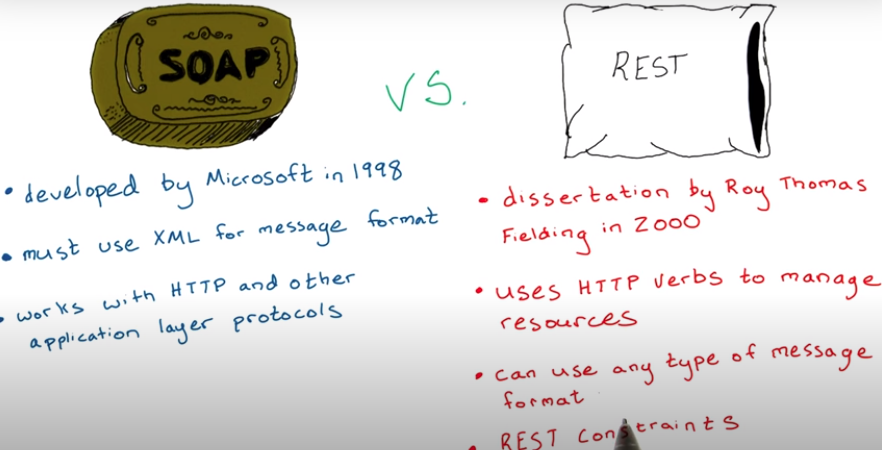 SOAP
vs.
REST
• developed by Microsoft in 1998
• must use XML for message format
• works with HTTP and other
application layer protocols
• dissertation by Roy Thomas
Fielding in 2000
• uses HTTP verbs to manage
resources
• can use any type of message
format
• REST Constraints